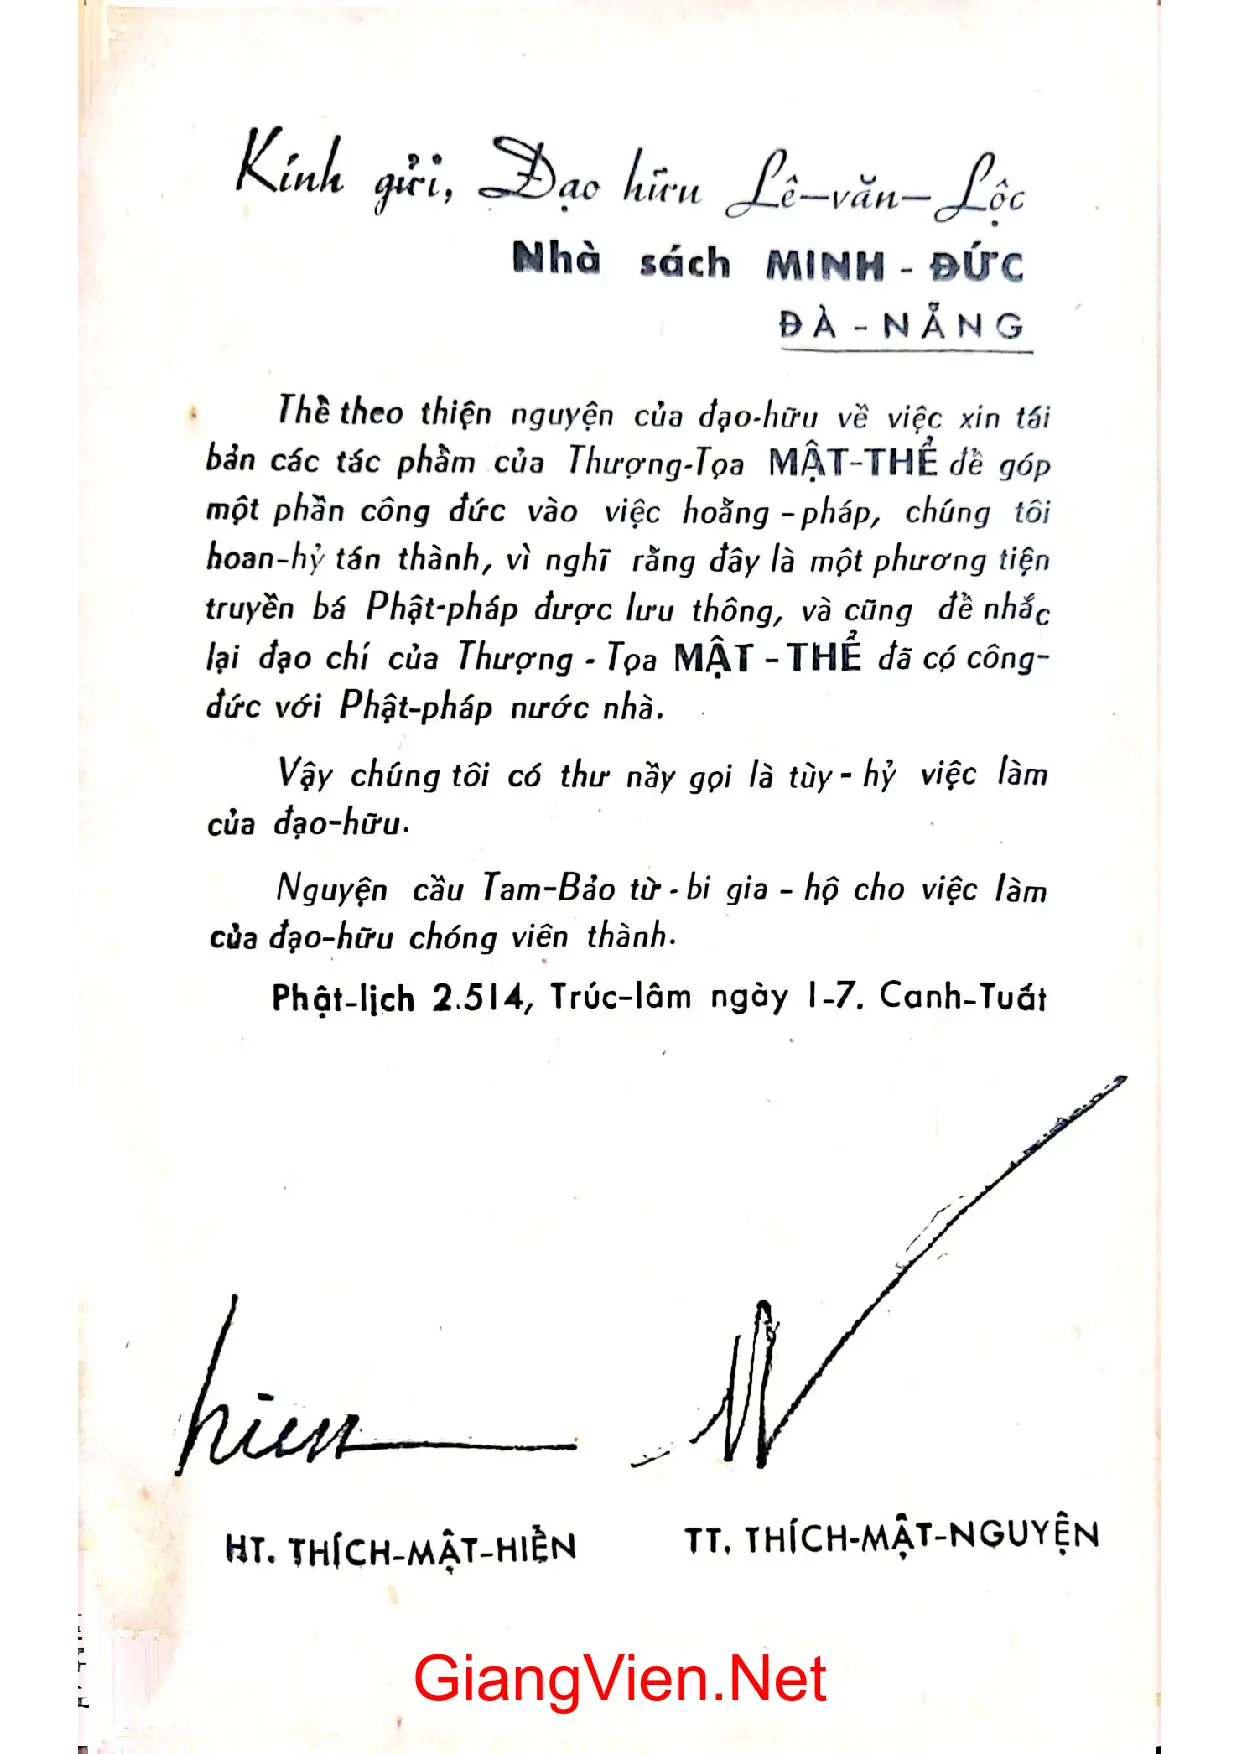 Kính gửi, Đạo hữu Lê-văn-Lộc
Nhà sách MINH - ĐỨC
ĐÀ - NẴNG
Thể theo thiện nguyện của đạo-hữu về việc xin tái
bản các tác phẩm của Thượng-Tọa MẬT-THỂ để góp
một phần công đức vào việc hoằng - pháp, chúng tôi
hoan-hỷ tán thành, vì nghĩ rằng đây là một phương tiện
truyền bá Phật-pháp được lưu thông, và cũng để nhắc
lại đạo chí của Thượng - Tọa MẬT - THỂ đã có công-
đức với Phật-pháp nước nhà.
Vậy chúng tôi có thư nầy gọi là tùy - hỷ việc làm
của đạo-hữu.
Nguyện cầu Tam-Bảo từ - bi gia - hộ cho việc làm
của đạo-hữu chóng viên thành.
Phật-lịch 2.514, Trúc-lâm ngày 1-7. Canh-Tuất
hien
HT. THÍCH-MẬT-HIỂN TT. THÍCH-MẬT-NGUYỆN
GiangVien.Net